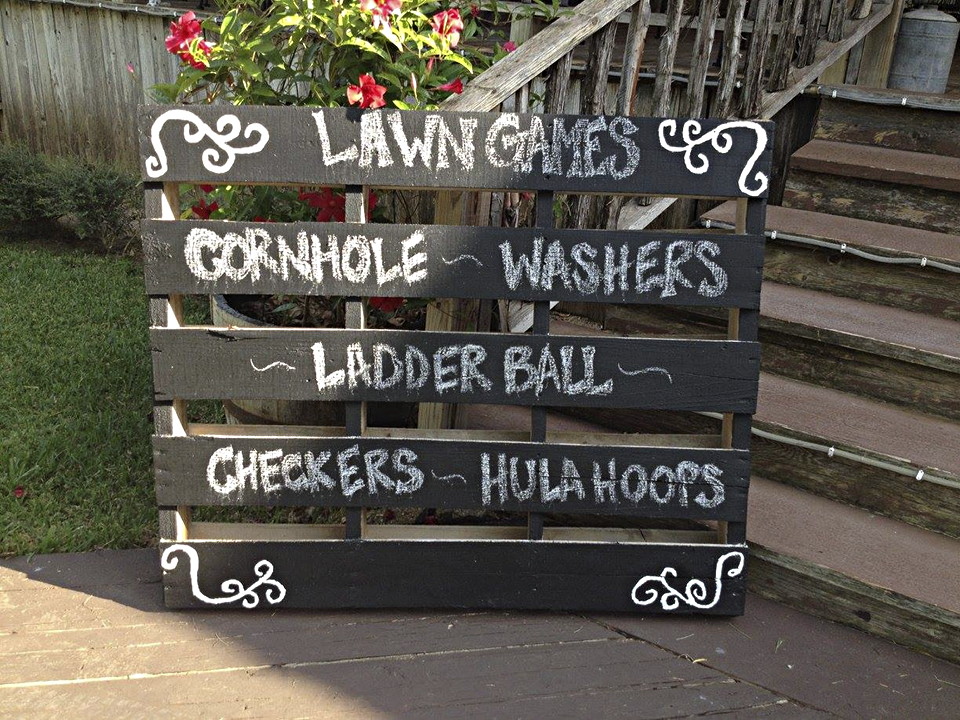 LAWN GAMES
CORNHOLE ~ WASHERS
~ LADDER BALL ~
CHECKERS ~ HULA HOOPS